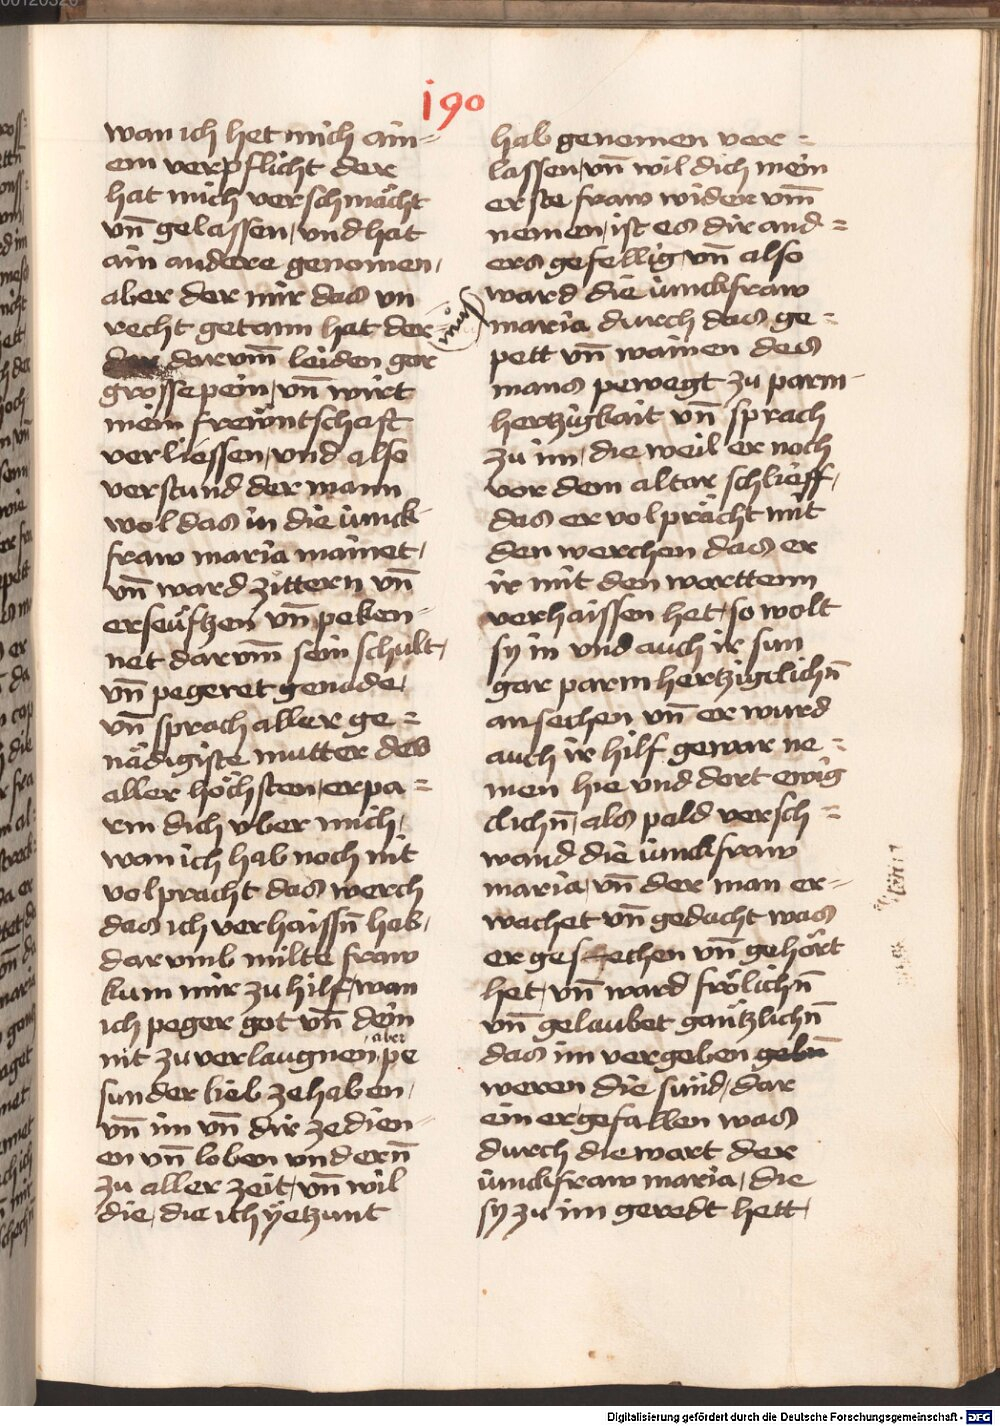 190
wan ich het mich ain=
em verpflicht der
hat mich verschmächt
vn̄ gelassen, vnd hat
ain andere genomen,
aber der mir das vn
recht getann hat der
mus
der darvm̄ leiden gar
grosse pein, vn̄ wirt
mein frewntschaft
verliessen, vnd also
verstund der mann
wol das in die iunck-
fraw maria mainet,
vn̄ ward zittern vn̄
erseuftzen vn̄ peken-
net darvm̄ sein schult,
vn̄ pegeret genade,
vn̄ sprach aller ge=
nädigiste mutter des
aller höchsten, erpa=
rm dich vber mich,
wan ich hab noch nit
volpracht das werch
das ich verhaissn̄ hab,
darvmb milte fraw
kum mir zu hilf, wan
ich peger got vn̄ dein
nit zu verlaugnen, aber pe
sunder lieb ze haben,
vn̄ im vn̄ dir ze dien-
en vn̄ loben vnd ern̄
zu aller zeit, vn̄ wil
die, die ich yetzunt
hab genomen ver=
lassen, vn̄ wil dich mein
erste fraw wider vm̄
nemen, ist es dir and=
ers gefellig, vn̄ also
ward die iunckfraw
maria durch das ge=
pett vn̄ wainen des
mans pewegt zu parm-
hertzigkait vn̄ sprach
zu im, die weil er noch
vor dem altar schlieff,
das er volprächt mit
den werchen das er
ir mit den worttenn
verhaissen het, so wolt
sy in vnd auch ir sun
gar parmhertzigclichn̄
ansechen vn̄ er wurd
auch ir hilf gewar ne=
men hie vnd dort ewig
clichn̄, als pald versch=
wand die iunckfraw
maria, vn̄ der man er=
wachet vn̄ gedacht was
er gesechen vn̄ gehört
het, vn̄ ward frölichn̄
vn̄ gelaubet gäntzlichn̄
das im vergeben gebn̄
weren die sünd, dar
ein er gefallen was
durch die wart der
iunckfraw maria, die
sy zu im geredt hett,
Digitalisierung gefördert durch die Deutsche Forschungsgemeinschaft - DFG